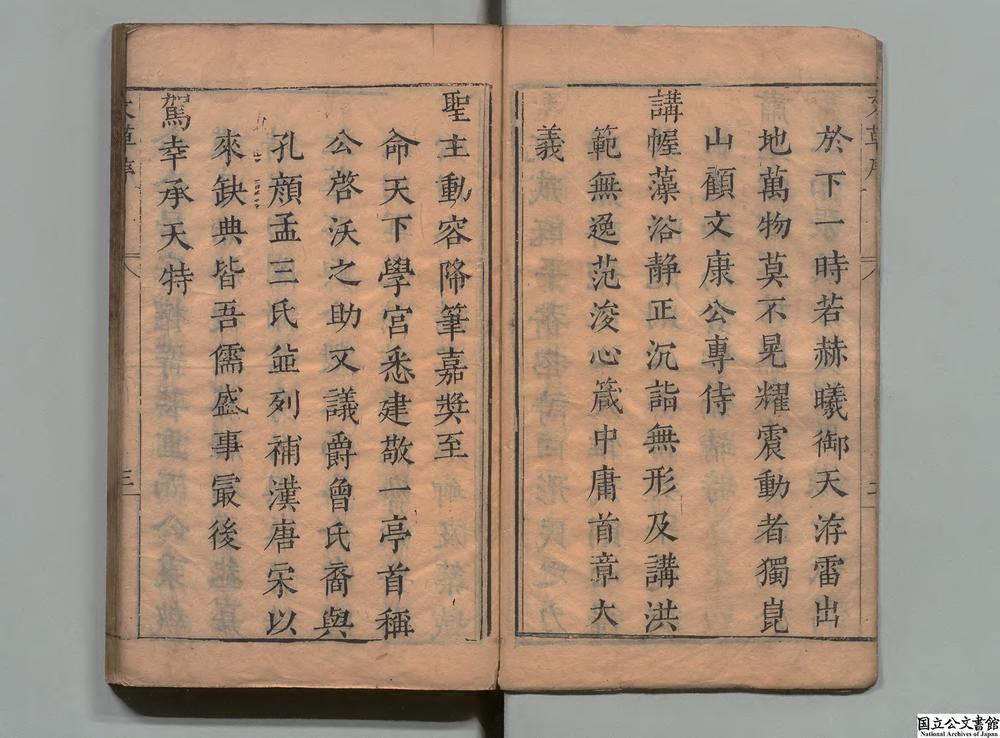 於下一時若赫曦御天洊雷出
地萬物莫不晃耀震動者獨崑
山顧文康公專侍
講幄藻浴静正沉詣無形及講洪
範無逸范浚心箴中庸首章大
義
聖主動容降筆嘉奬至
命天下學宮悉建敬一亭首稱
公啓沃之助又議爵曾氏裔與
孔顔孟三氏並列補漢唐宋以
來缺典皆吾儒盛事最後
駕幸承天特
三
国立公文書館
National Archives of Japan